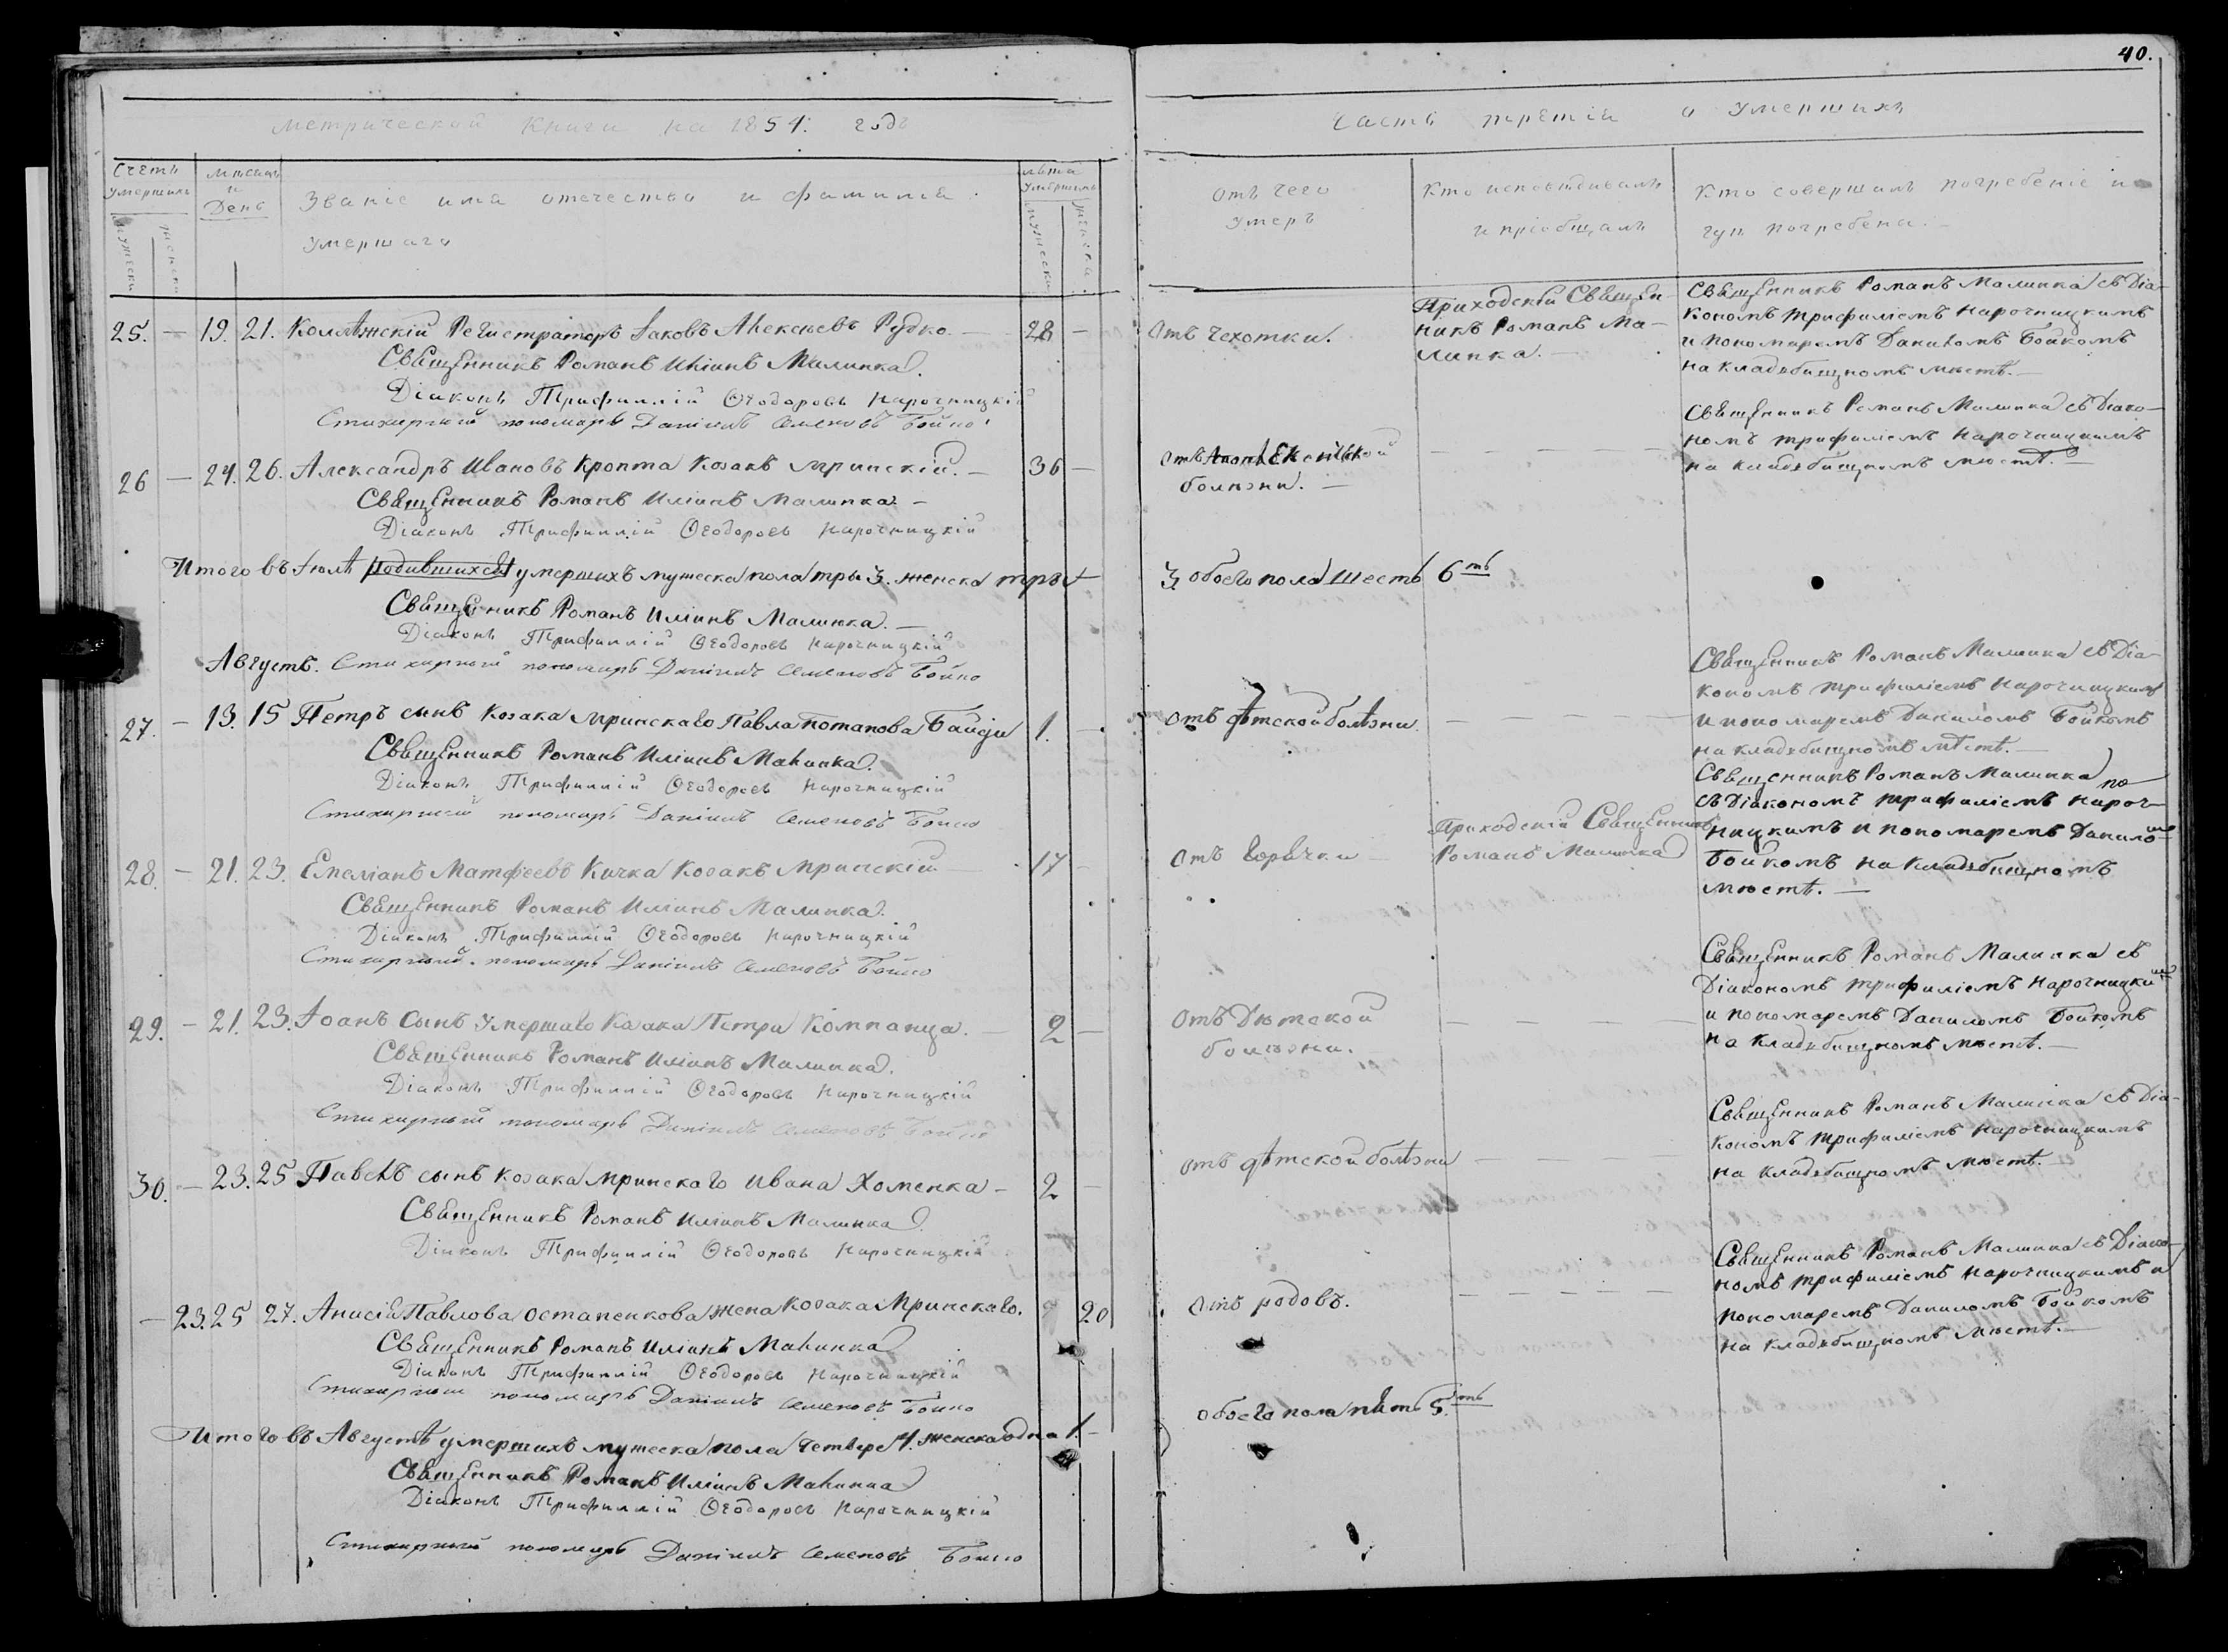 40.
Метрической Книги на 1854: годъ
Счетъ умершихъ
мѣсяцъ и День
Званіе имя отечество и фамилія
умершаго
лѣта умершихъ
мужеска
женска
мужеска
женска
25. — 19. 21. Коллѣжскій Регистраторъ Іаковъ Алексѣевъ Рудко. — 28 —
Священникъ Романъ Иліинъ Малинка.
Діаконъ Трифиллій Ѳеодоровъ Нарочницкій
Стихирный пономарь Даніилъ Семеновъ Бойко
26 — 24. 26. Александръ Ивановъ Кропта Козакъ Мринскій. — 36 —
Священникъ Романъ Иліинъ Малинка —
Діаконъ Трифиллій Ѳеодоровъ Нарочницкій
Итого въ Іюлѣ родившихся умершихъ мужеска пола три 3. женска три
Священникъ Романъ Иліинъ Малинка. —
Діаконъ Трифиллій Ѳеодоровъ Нарочницкій
Августъ. Стихирный пономарь Даніилъ Семеновъ Бойко
27. — 13. 15 Петръ сынъ Козака Мринскаго Павла Потапова Байди 1. —
Священникъ Романъ Иліинъ Малинка.
Діаконъ Трифиллій Ѳеодоровъ Нарочницкій
Стихирный пономарь Даніилъ Семеновъ Бойко
28. — 21. 23. Емеліанъ Матфеевъ Кичка Козакъ Мринскій — 17 —
Священникъ Романъ Иліинъ Малинка.
Діаконъ Трифиллій Ѳеодоровъ Нарочницкій
Стихирный пономарь Даніилъ Семеновъ Бойко
29. — 21. 23. Іоанъ Сынъ Умершаго Козака Петра Компанца. — 2 —
Священникъ Романъ Иліинъ Малинка.
Діаконъ Трифиллій Ѳеодоровъ Нарочницкій
Стихирный пономарь Даніилъ Семеновъ Бойко
30. — 23. 25 Павелъ сынъ Козака Мринскаго Ивана Хоменка — 2 —
Священникъ Романъ Иліинъ Малинка.
Діаконъ Трифиллій Ѳеодоровъ Нарочницкій
— 23. 25 27. Анисія Павлова Остапенкова жена Козака Мринскаго. 20
Священникъ Романъ Иліинъ Малинка
Діаконъ Трифиллій Ѳеодоровъ Нарочницкій
Стихирный пономарь Даніилъ Семеновъ Бойко
Итого въ Августѣ умершихъ мужеска пола четыре 4. женска одна 1. —
Священникъ Романъ Иліинъ Малинка
Діаконъ Трифиллій Ѳеодоровъ Нарочницкій
Стихирный пономарь Даніилъ Семеновъ Бойко
Часть третія о умершихъ
Отъ чего умеръ
Кто исповѣдывалъ
и пріобщалъ
Кто совершалъ погребеніе и
гдѣ погребены.
Отъ Чехотки.
Приходскій Священ-
никъ Романъ Ма-
линка. —
Священникъ Романъ Малинка съ Діа-
кономъ Трифиліемъ Нарочницкимъ
и пономаремъ Даниломъ Бойкомъ
на кладъбищномъ мѣстѣ. —
Отъ Апоплексической
болѣзни. —
Священникъ Романъ Малинка съ Діако-
номъ Трифиліемъ Нарочницкимъ
на кладъбищномъ мѣстѣ. —
3 обоего пола шесть 6ть
Отъ дѣтской болѣзни.
Священникъ Романъ Малинка съ Діа-
кономъ Трифиліемъ Нарочницкимъ
и пономаремъ Даниломъ Бойкомъ
на кладъбищномъ мѣстѣ. —
Отъ Горячки —
Приходскій Священникъ
Романъ Малинка
Священникъ Романъ Малинка
съ Діакономъ Трифиліемъ Нароч-
ницкимъ и пономаремъ Данило-
Бойкомъ на кладъбищномъ
мѣстѣ. —
Отъ Дѣтской
болѣзни.
Священникъ Романъ Малинка съ
Діакономъ Трифиліемъ Нарочницкимъ
и пономаремъ Даниломъ Бойкомъ
на кладъбищномъ мѣстѣ. —
Отъ дѣтской болѣзни
Священникъ Романъ Малинка съ Діа-
кономъ Трифиліемъ Нарочницкимъ
на кладъбищномъ мѣстѣ. —
Отъ родовъ.
Священникъ Романъ Малинка съ Діако-
номъ Трифиліемъ Нарочницкимъ и
пономаремъ Даниломъ Бойкомъ
на кладъбищномъ мѣстѣ. —
обоего пола пять 5.ть